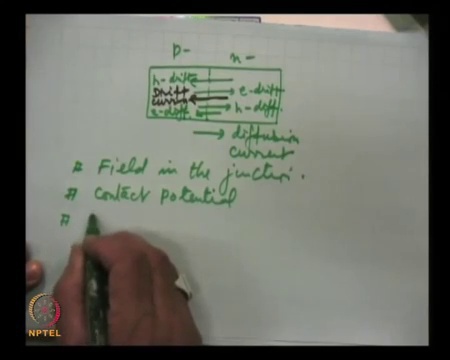 p- n-
h-drift
Drift e-drift
current h-diff.
e-diff
→ diffusion
current
# Field in the junction.
# Contact potential
#
NPTEL